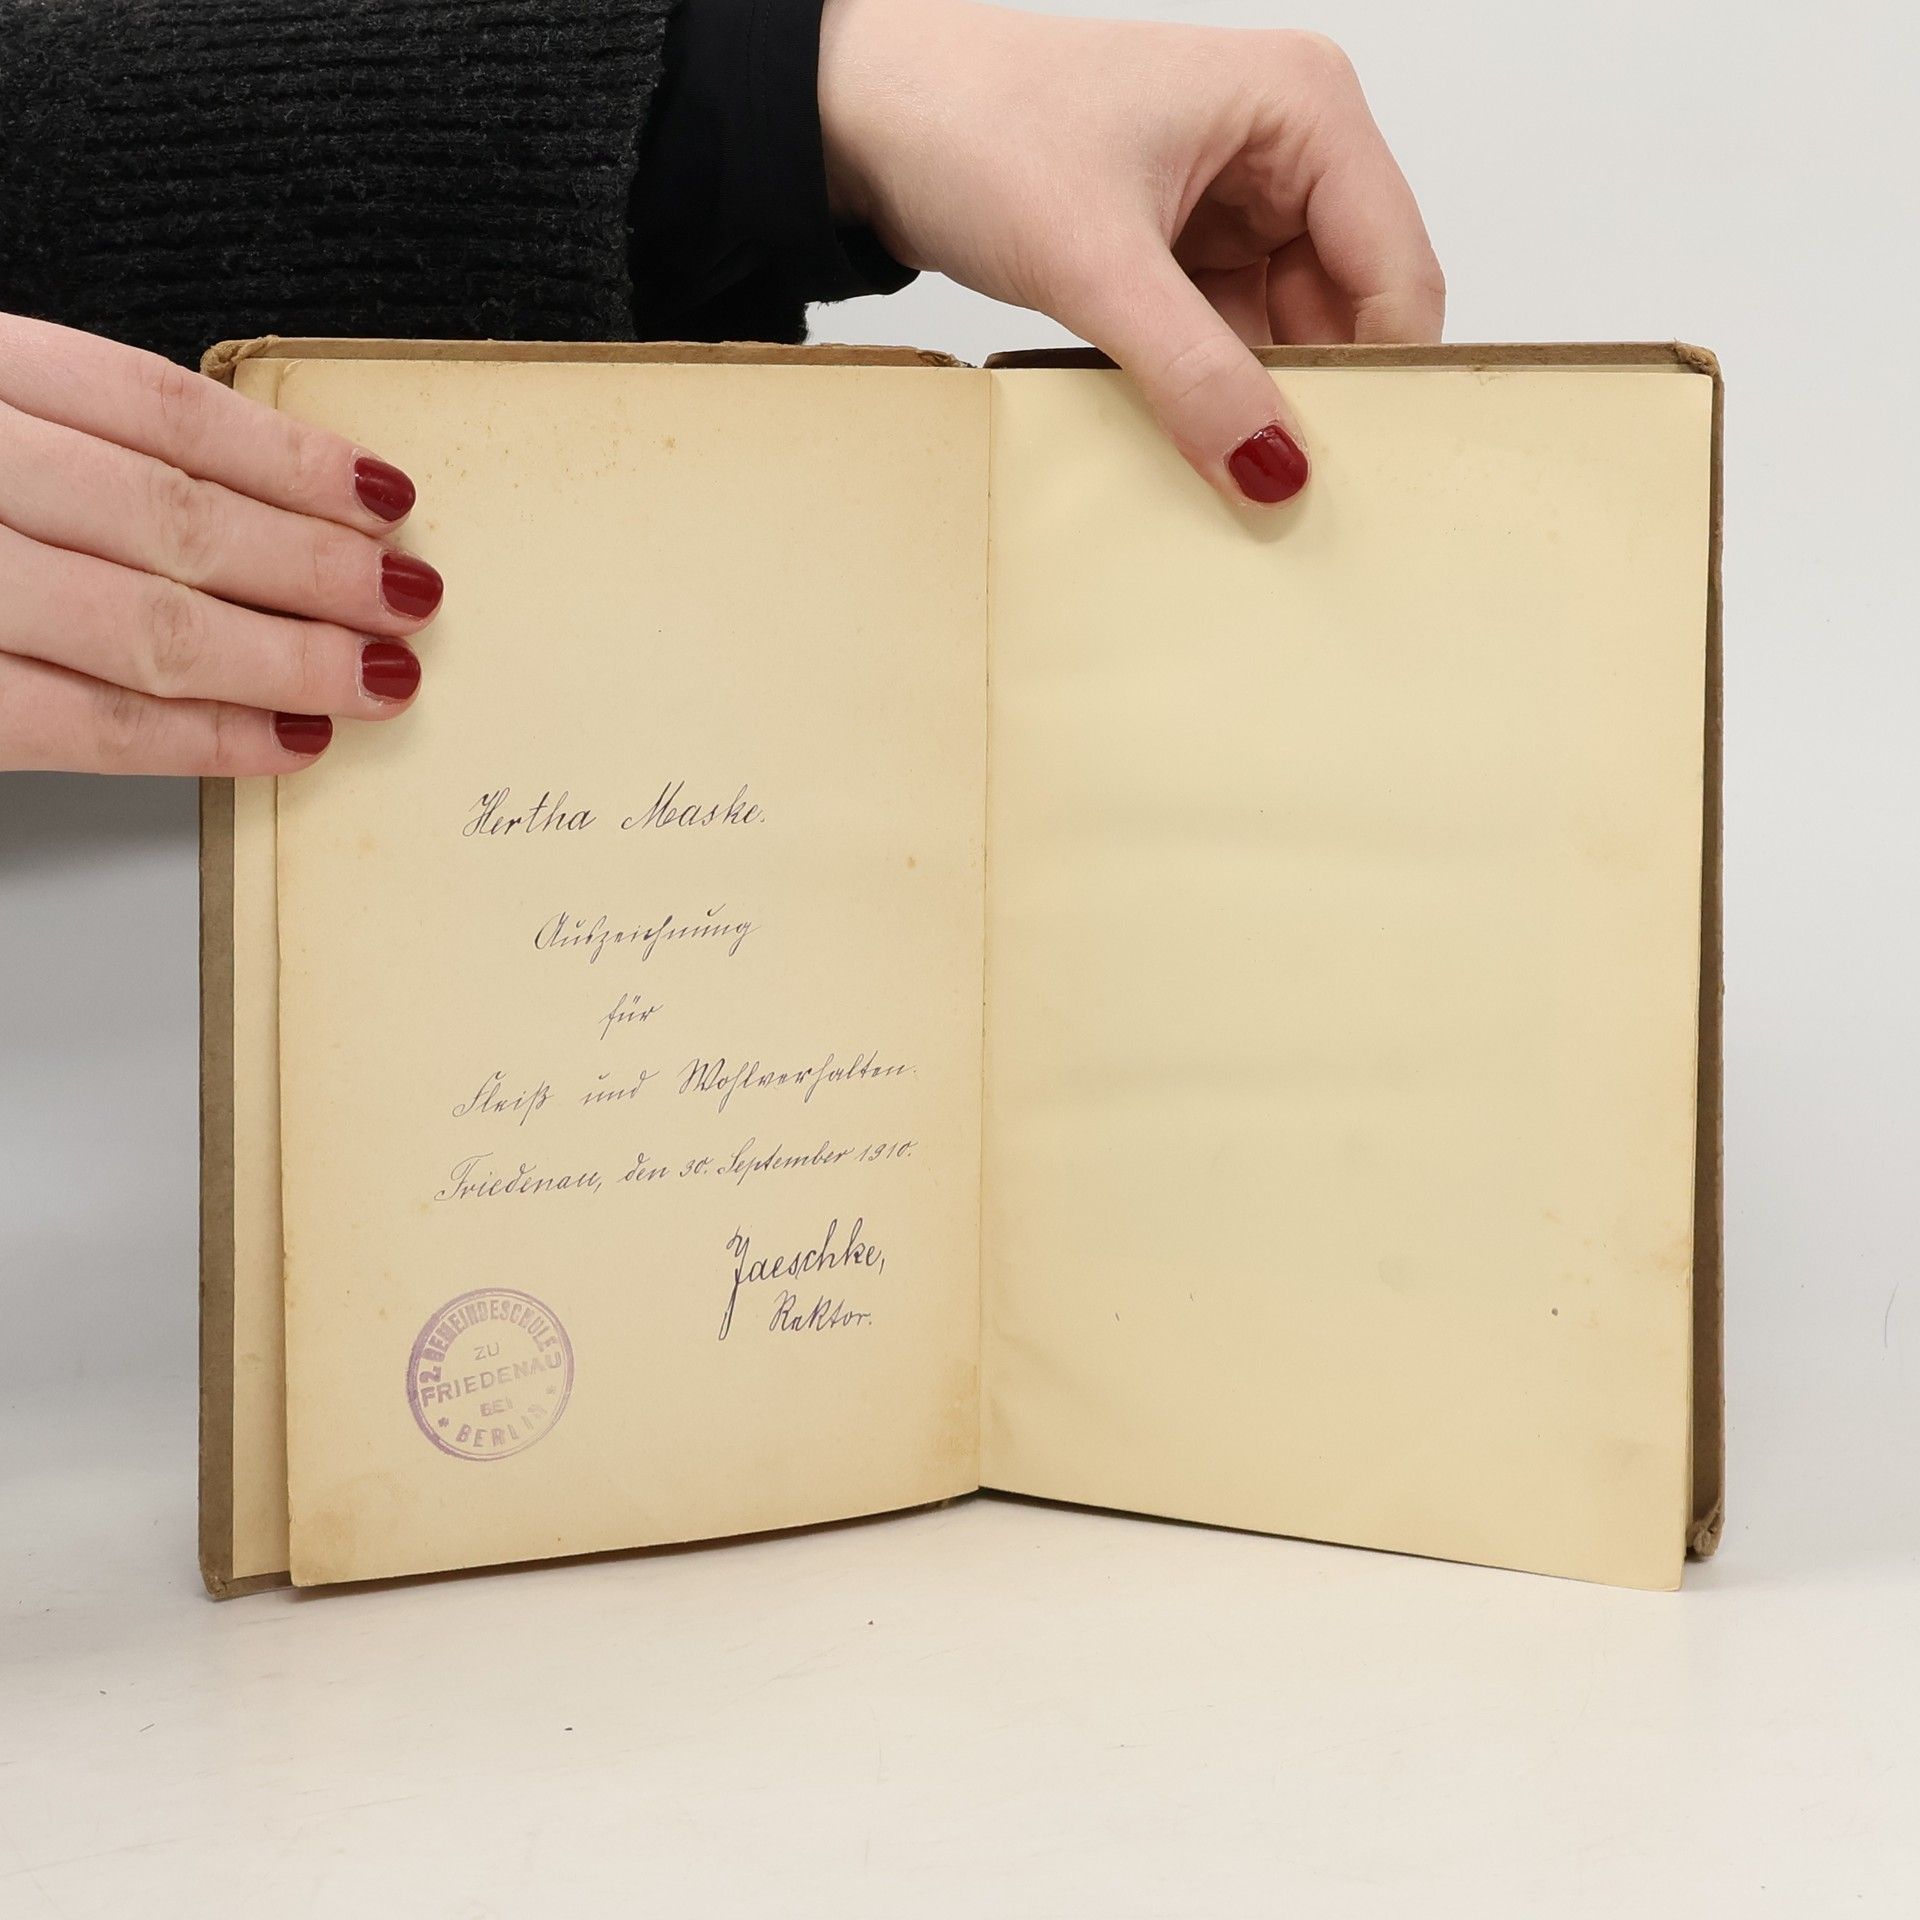 Hertha Maske.
Auszeichnung
für
Fleiß und Wohlverhalten.
Friedenau, den 30. September 1910.
Jaeschke,
Rektor.
2. GEMEINDESCHULE
ZU
FRIEDENAU
BEI
* BERLIN *